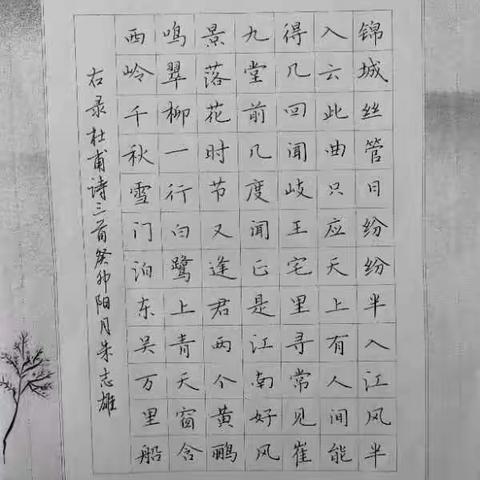 锦城丝管日纷纷半入江风半
入云此曲只应天上有人间能
得几回闻岐王宅里寻常见崔
九堂前几度闻正是江南好风
景落花时节又逢君两个黄鹂
鸣翠柳一行白鹭上青天窗含
西岭千秋雪门泊东吴万里船
右录杜甫诗三首癸卯阳月朱志雄